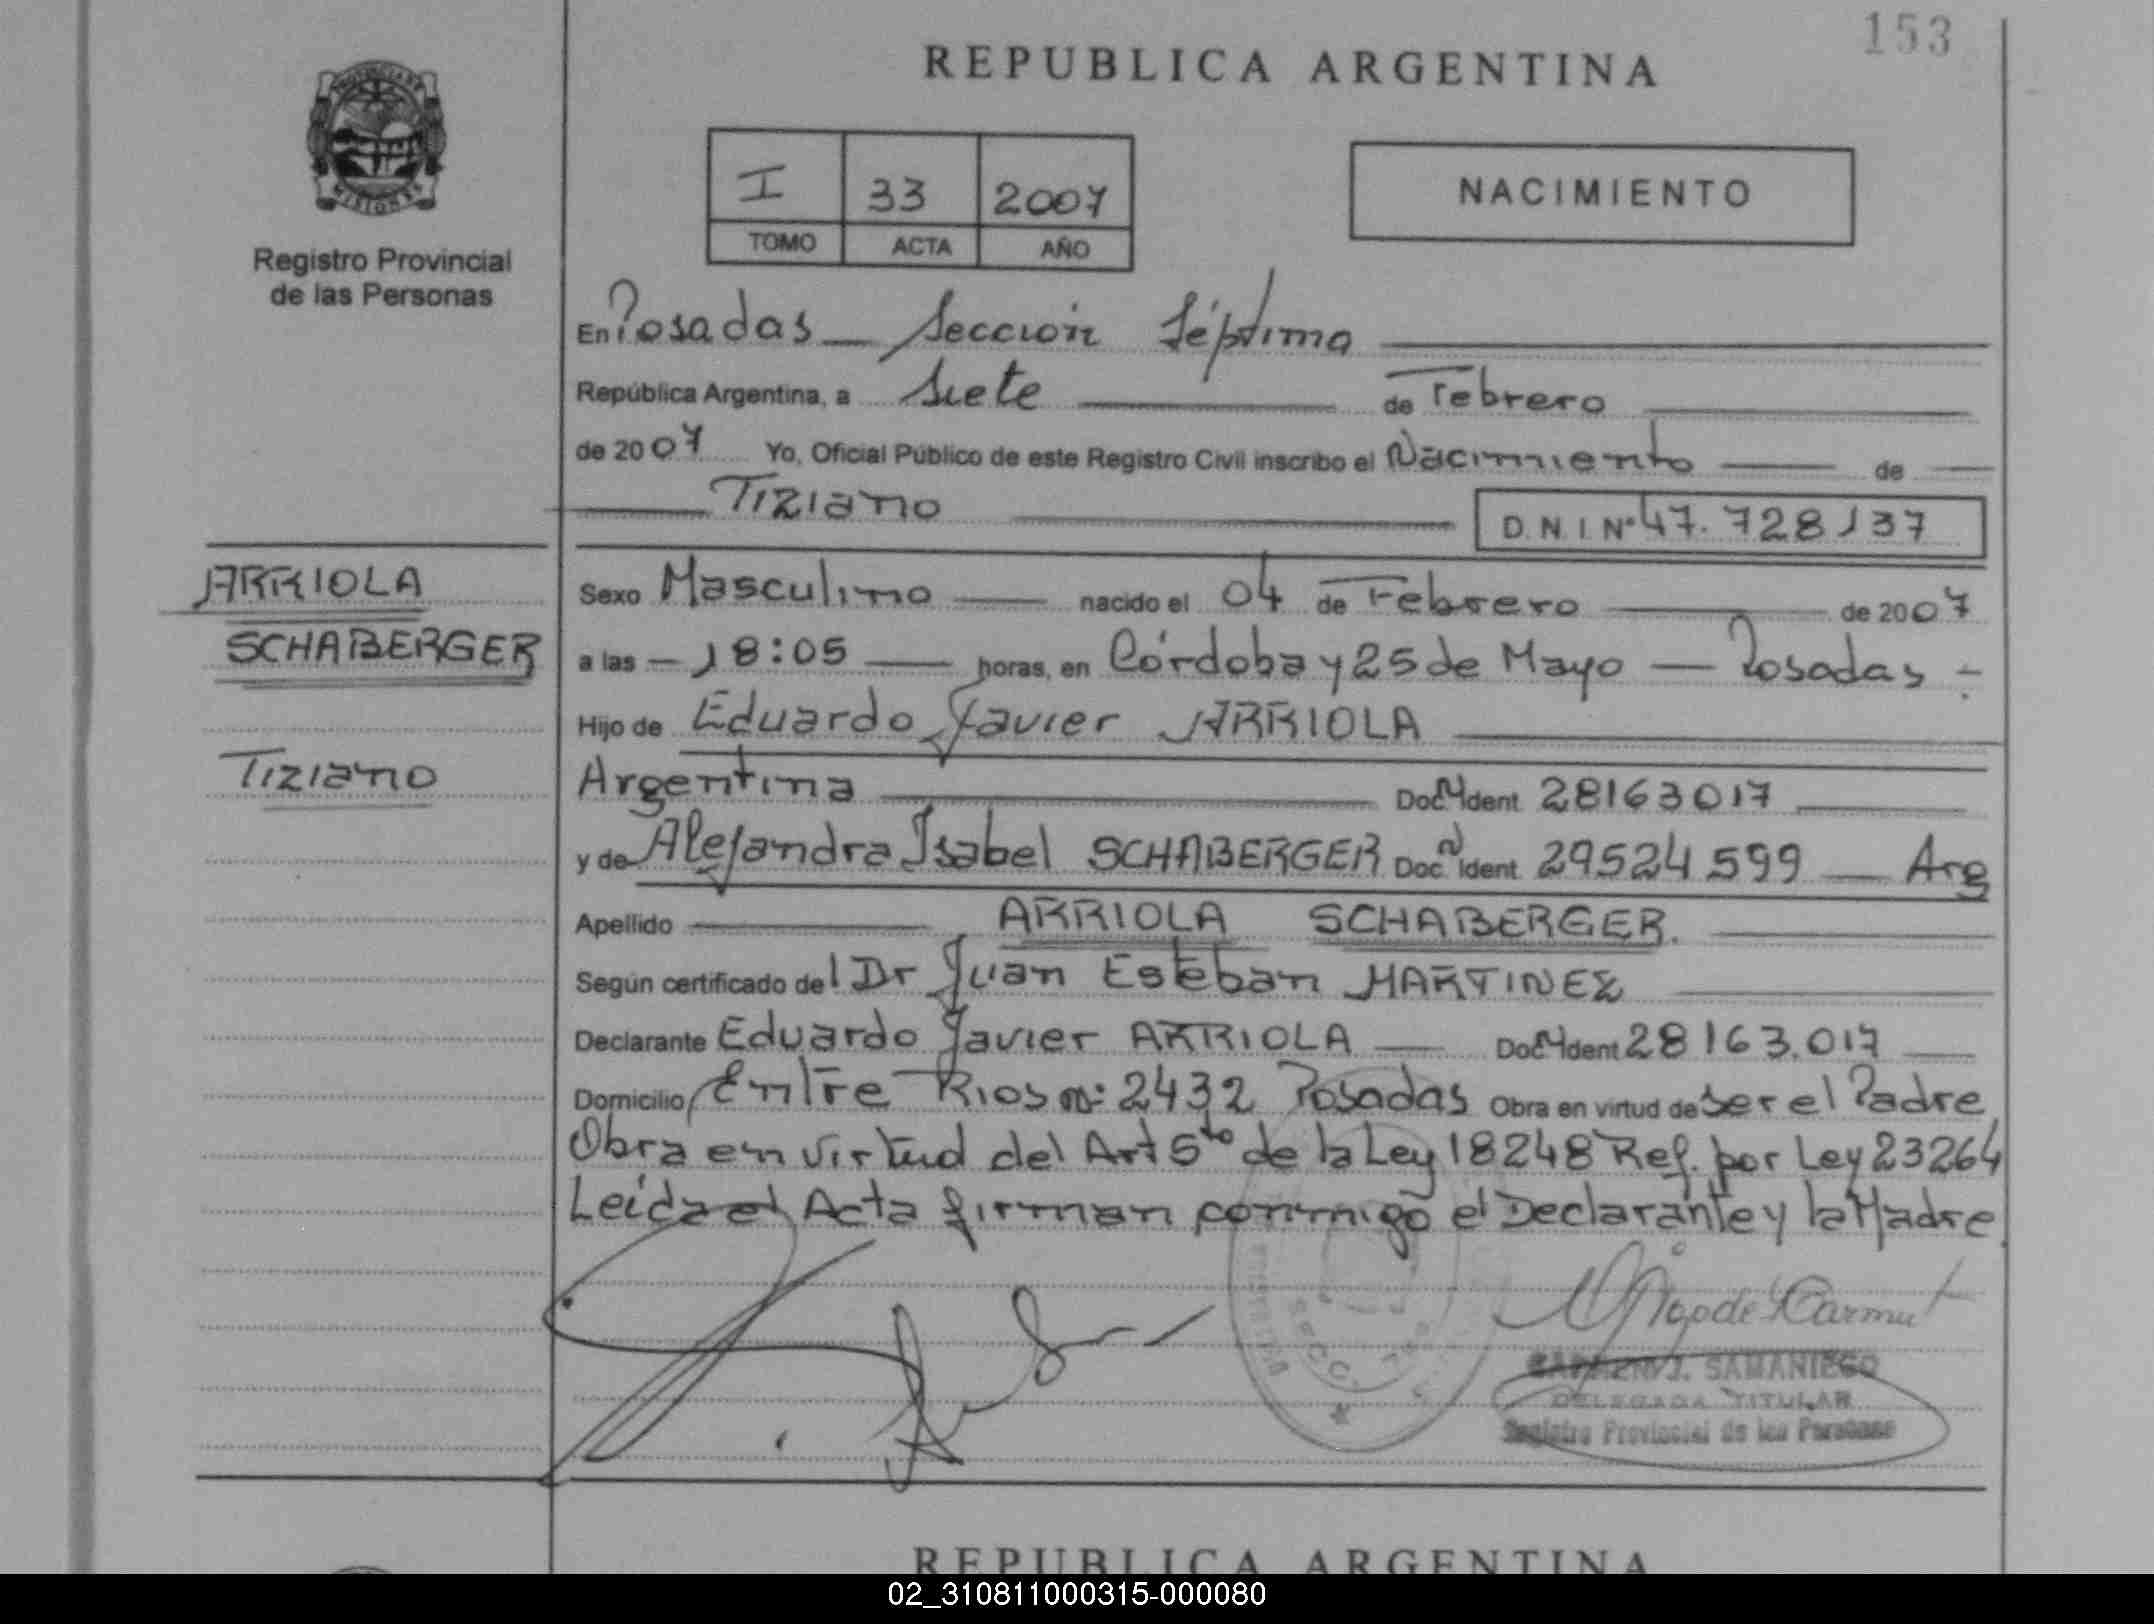 153
REPUBLICA ARGENTINA
PROVINCIA DE
MISIONES
Registro Provincial
de las Personas
I 33 2007
TOMO ACTA AÑO
NACIMIENTO
En Posadas — Sección Séptima
República Argentina, a Siete de Febrero
de 2007 Yo, Oficial Público de este Registro Civil inscribo el Nacimiento de
Tiziano D.N.I. Nº 47.728137
ARRIOLA
SCHABERGER
Tiziano
Sexo Masculino nacido el 04 de Febrero de 2007
a las — 18:05 — horas, en Córdoba y 25 de Mayo — Posadas -
Hijo de Eduardo Javier ARRIOLA
Argentina Doc Ident 28163017
y de Alejandra Isabel SCHABERGER Doc Ident 29524599 — Arg
Apellido ARRIOLA SCHABERGER.
Según certificado del Dr Juan Esteban MARTINEZ
Declarante Eduardo Javier ARRIOLA — Doc Ident 28163.017
Domicilio Entre Rios nº: 2432 Posadas Obra en virtud de ser el Padre
Obra en virtud del Art 5to de la Ley 18248 Ref. por Ley 23264
Leida el Acta firman conmigo el Declarante y la Madre
J. SAMANIEGO
DELEGADA TITULAR
Registro Provincial de las Personas
REPUBLICA ARGENTINA
02_310811000315-000080